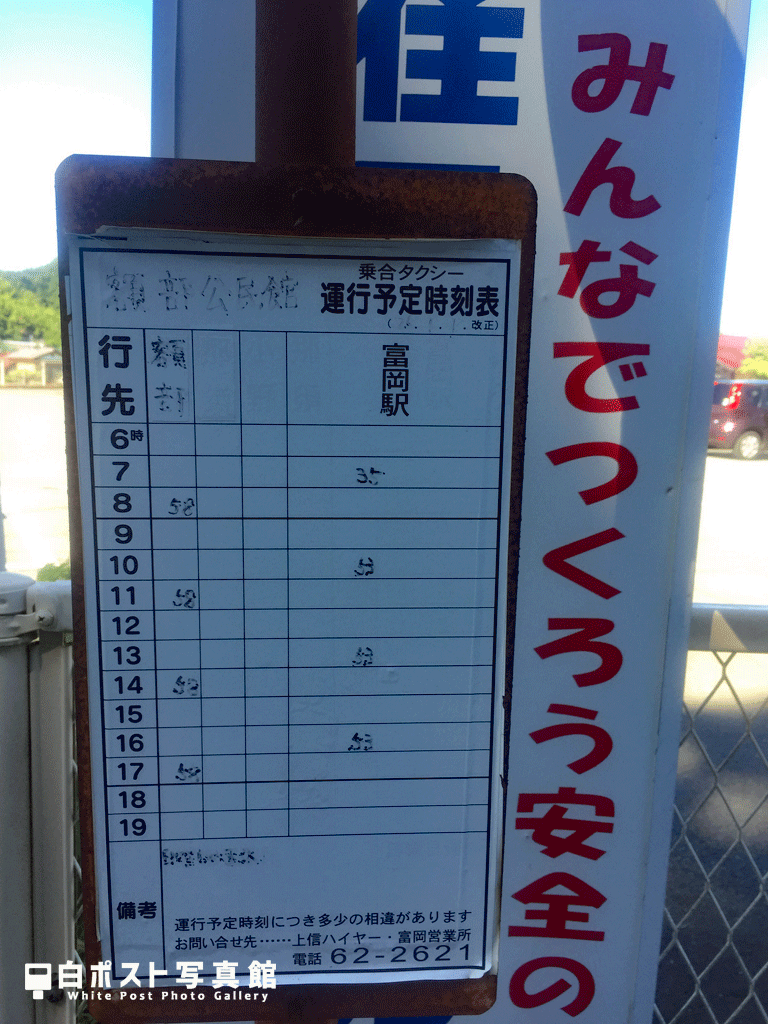 額部公民館
乗合タクシー
運行予定時刻表
改正)
行先
額部
富岡駅
6時
7 35
8 58
9
10 53
11 58
12
13 53
14 58
15
16 53
17 58
18
19
備考
運行予定時刻につき多少の相違があります
お問い合せ先……上信ハイヤー・富岡営業所
電話 62-2621
みんなでつくろう安全の
白ポスト写真館
White Post Photo Gallery